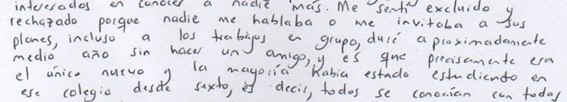 interesados en conocer a nadie más. Me sentí excluido y
rechazado porque nadie me hablaba o me invitaba a sus
planes, incluso a los trabajos en grupo, duré aproximadamente
medio año sin hacer un amigo, y es que precisamente era
el único nuevo y la mayoría había estado estudiando en
ese colegio desde sexto, es decir, todos se conocían con todos